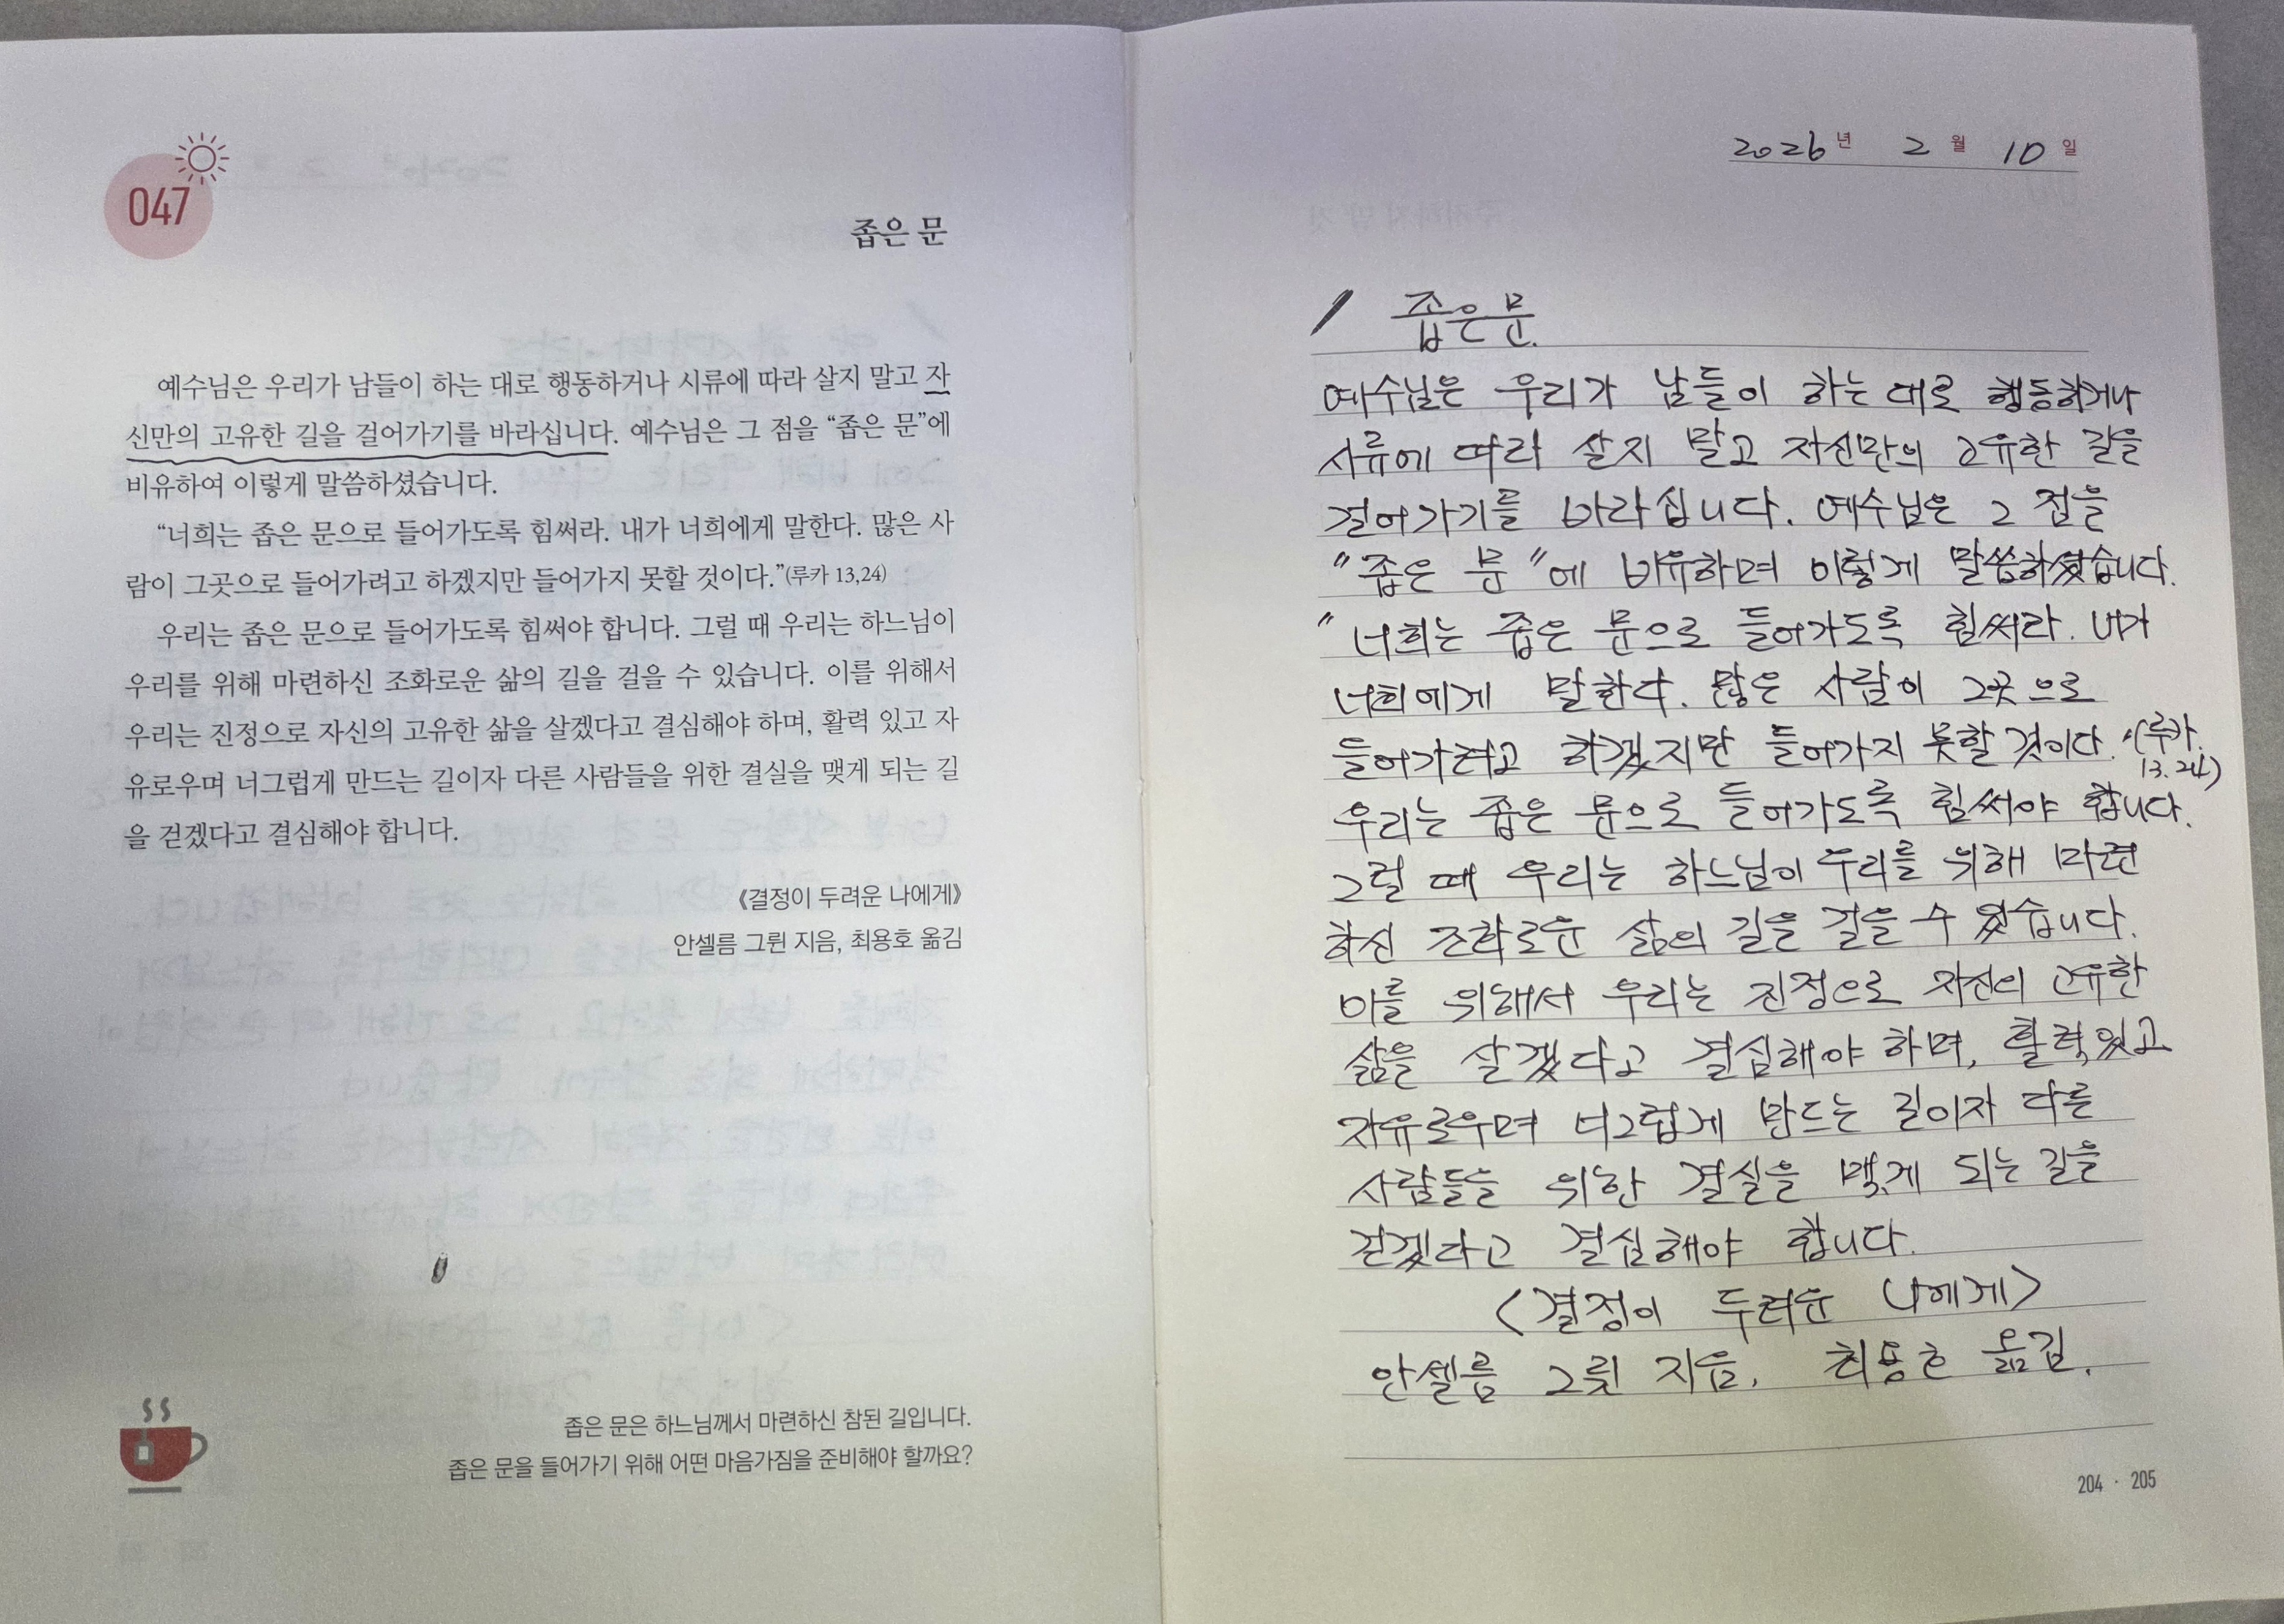 047
좁은 문
예수님은 우리가 남들이 하는 대로 행동하거나 시류에 따라 살지 말고 자
신만의 고유한 길을 걸어가기를 바라십니다. 예수님은 그 점을 “좁은 문”에
비유하여 이렇게 말씀하셨습니다.
“너희는 좁은 문으로 들어가도록 힘써라. 내가 너희에게 말한다. 많은 사
람이 그곳으로 들어가려고 하겠지만 들어가지 못할 것이다.”(루카 13,24)
우리는 좁은 문으로 들어가도록 힘써야 합니다. 그럴 때 우리는 하느님이
우리를 위해 마련하신 조화로운 삶의 길을 걸을 수 있습니다. 이를 위해서
우리는 진정으로 자신의 고유한 삶을 살겠다고 결심해야 하며, 활력 있고 자
유로우며 너그럽게 만드는 길이자 다른 사람들을 위한 결실을 맺게 되는 길
을 걷겠다고 결심해야 합니다.
《결정이 두려운 나에게》
안셀름 그륀 지음, 최용호 옮김
좁은 문은 하느님께서 마련하신 참된 길입니다.
좁은 문을 들어가기 위해 어떤 마음가짐을 준비해야 할까요?
2026년 2월 10일
좁은 문.
예수님은 우리가 남들이 하는 대로 행동하거나
시류에 따라 살지 말고 자신만의 고유한 길을
걸어가기를 바라십니다. 예수님은 그 점을
"좁은 문"에 비유하며 이렇게 말씀하셨습니다.
"너희는 좁은 문으로 들어가도록 힘써라. 내가
너희에게 말한다. 많은 사람이 그곳으로
들어가려고 하겠지만 들어가지 못할 것이다."(루카.
13.24)
우리는 좁은 문으로 들어가도록 힘써야 합니다.
그럴 때 우리는 하느님이 우리를 위해 마련
하신 조화로운 삶의 길을 걸을 수 있습니다.
이를 위해서 우리는 진정으로 자신의 고유한
삶을 살겠다고 결심해야 하며, 활력 있고
자유로우며 너그럽게 만드는 길이자 다른
사람들을 위한 결실을 맺게 되는 길을
걷겠다고 결심해야 합니다.
<결정이 두려운 나에게>
안셀름 그륀 지음, 최용호 옮김.
204 · 205